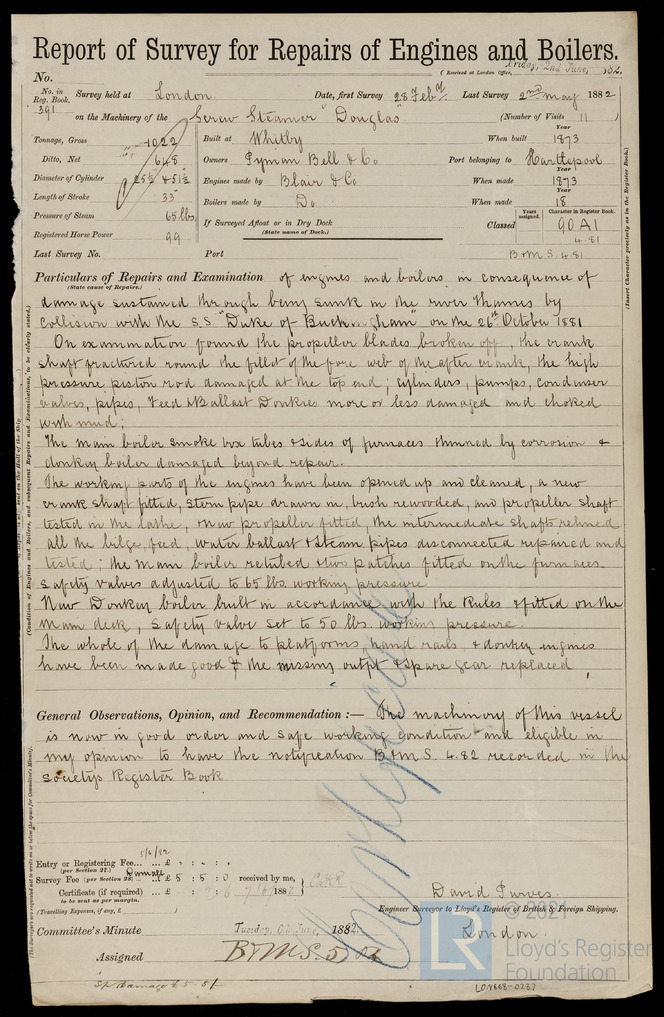 Report of Survey for Repairs of Engines and Boilers.
(Received at London Office, Friday, 2nd June, 1882.
No.
No. in Reg. Book. Survey held at London. Date, first Survey 28 Feby Last Survey 2nd May 1882
391 on the Machinery of the Screw Steamer "Douglas" (Number of Visits 11
Tonnage, Gross 1022 Built at Whitby When built Year 1873
Ditto, Net 648 Owners Pyman Bell & Co Port belonging to Hartlepool
Diameter of Cylinder Engines made by Blair & Co When made Year 1873
Length of Stroke 33" Boilers made by Do. When made Year 18
Pressure of Steam 65 lbs. If Surveyed Afloat or in Dry Dock Classed Years assigned. Character in Register Book. 90 A1
Registered Horse Power 99 (State name of Dock.) 4.81
Last Survey No. Port B&MS. 4.81
Particulars of Repairs and Examination of engines and boilers in consequence of
(State cause of Repairs.)
damage sustained through being sunk in the river Thames by
collision with the S.S. "Duke of Buckingham" on the 26th October 1881
On examination found the propeller blades broken off, the crank
shaft fractured round the fillet of the fore web of the after crank, the high
pressure piston rod damaged at the top end; cylinders, pumps, condenser
valves, pipes, Feed & Ballast Donkies more or less damaged and choked
with mud;
The main boiler smoke box tubes & sides of furnaces thinned by corrosion &
donkey boiler damaged beyond repair.
The working parts of the engines have been opened up and cleaned, a new
crank shaft fitted, stern pipe drawn in, bush rewooded, and propeller shaft
tested in the lathe, new propeller fitted, the intermediate shafts relined
all the bilge, feed, water ballast & steam pipes disconnected repaired and
tested; the main boiler retubed & two patches fitted on the furnaces.
Safety valves adjusted to 65 lbs. working pressure
New Donkey boiler built in accordance with the Rules & fitted on the
main deck, safety valve set to 50 lbs. working pressure.
The whole of the damage to platforms, hand rails, & donkey engines
have been made good & the missing outfit & spare gear replaced,
General Observations, Opinion, and Recommendation:— The machinery of this vessel
is now in good order and safe working condition and eligible in
my opinion to have the notification B&MS. 4.82 recorded in the
Society's Register Book
5/6/82
Entry or Registering Fee... ... £ : :
(per Section 27.)
Survey Fee (per Section 28) ... £ 5 : 5 : 0 received by me,
Certificate (if required) ... £ : : 188
to be sent as per margin.
(Travelling Expenses, if any, £ )
David Purves
Engineer Surveyor to Lloyd's Register of British & Foreign Shipping.
London.
Committee's Minute Tuesday, 6th June, 1882.
Assigned B&MS. 5.82
LR
© 2021
Lloyd's Register
Foundation
LON868-0237